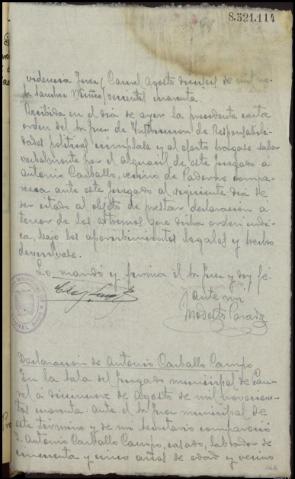 8.521.114
Providencia Juez Carral, Agosto dieciseis de mil no
Sr. Sanchez Muñoz vecientos cuarenta
Recibida en el día de ayer la precedente carta
orden del Sr. Juez de Instrucción de Responsabili-
dades políticas cúmplase y al efecto hágase saber
verbalmente por el alguacil de este juzgado a
Antonio Carballo, vecino de compa-
rezca ante este juzgado al siguiente día de
ser citado al objeto de prestar declaración a
tenor de los extremos que dicha orden indi-
ca, bajo los apercibimientos legales y hecho
devuélvase.
Lo mandó y firma el Sr. Juez y doy fé
Ante mi
Modesto
Declaración de Antonio Carballo Campo
En la sala del juzgado municipal de Carral
a de Agosto de mil novecien-
tos cuarenta ante el Sr. Juez municipal de
este término y de mi Secretario compareció
D. Antonio Carballo Campo, casado, labrador de
cincuenta y cinco años de edad y vecino